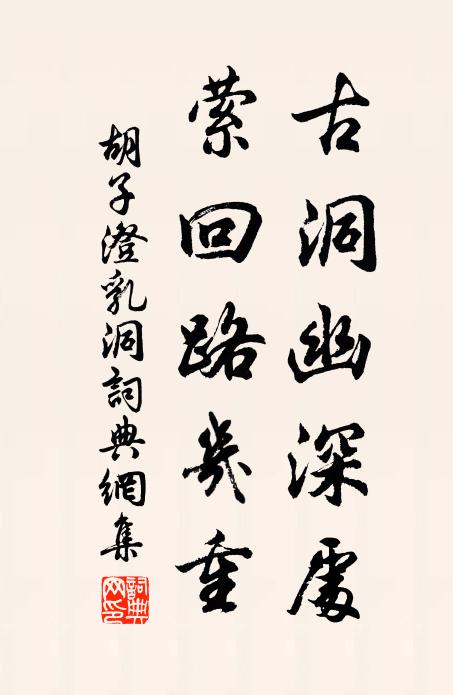 古洞幽深處
萦回路幾重
胡子澄乳洞詞典網集
詞典网印